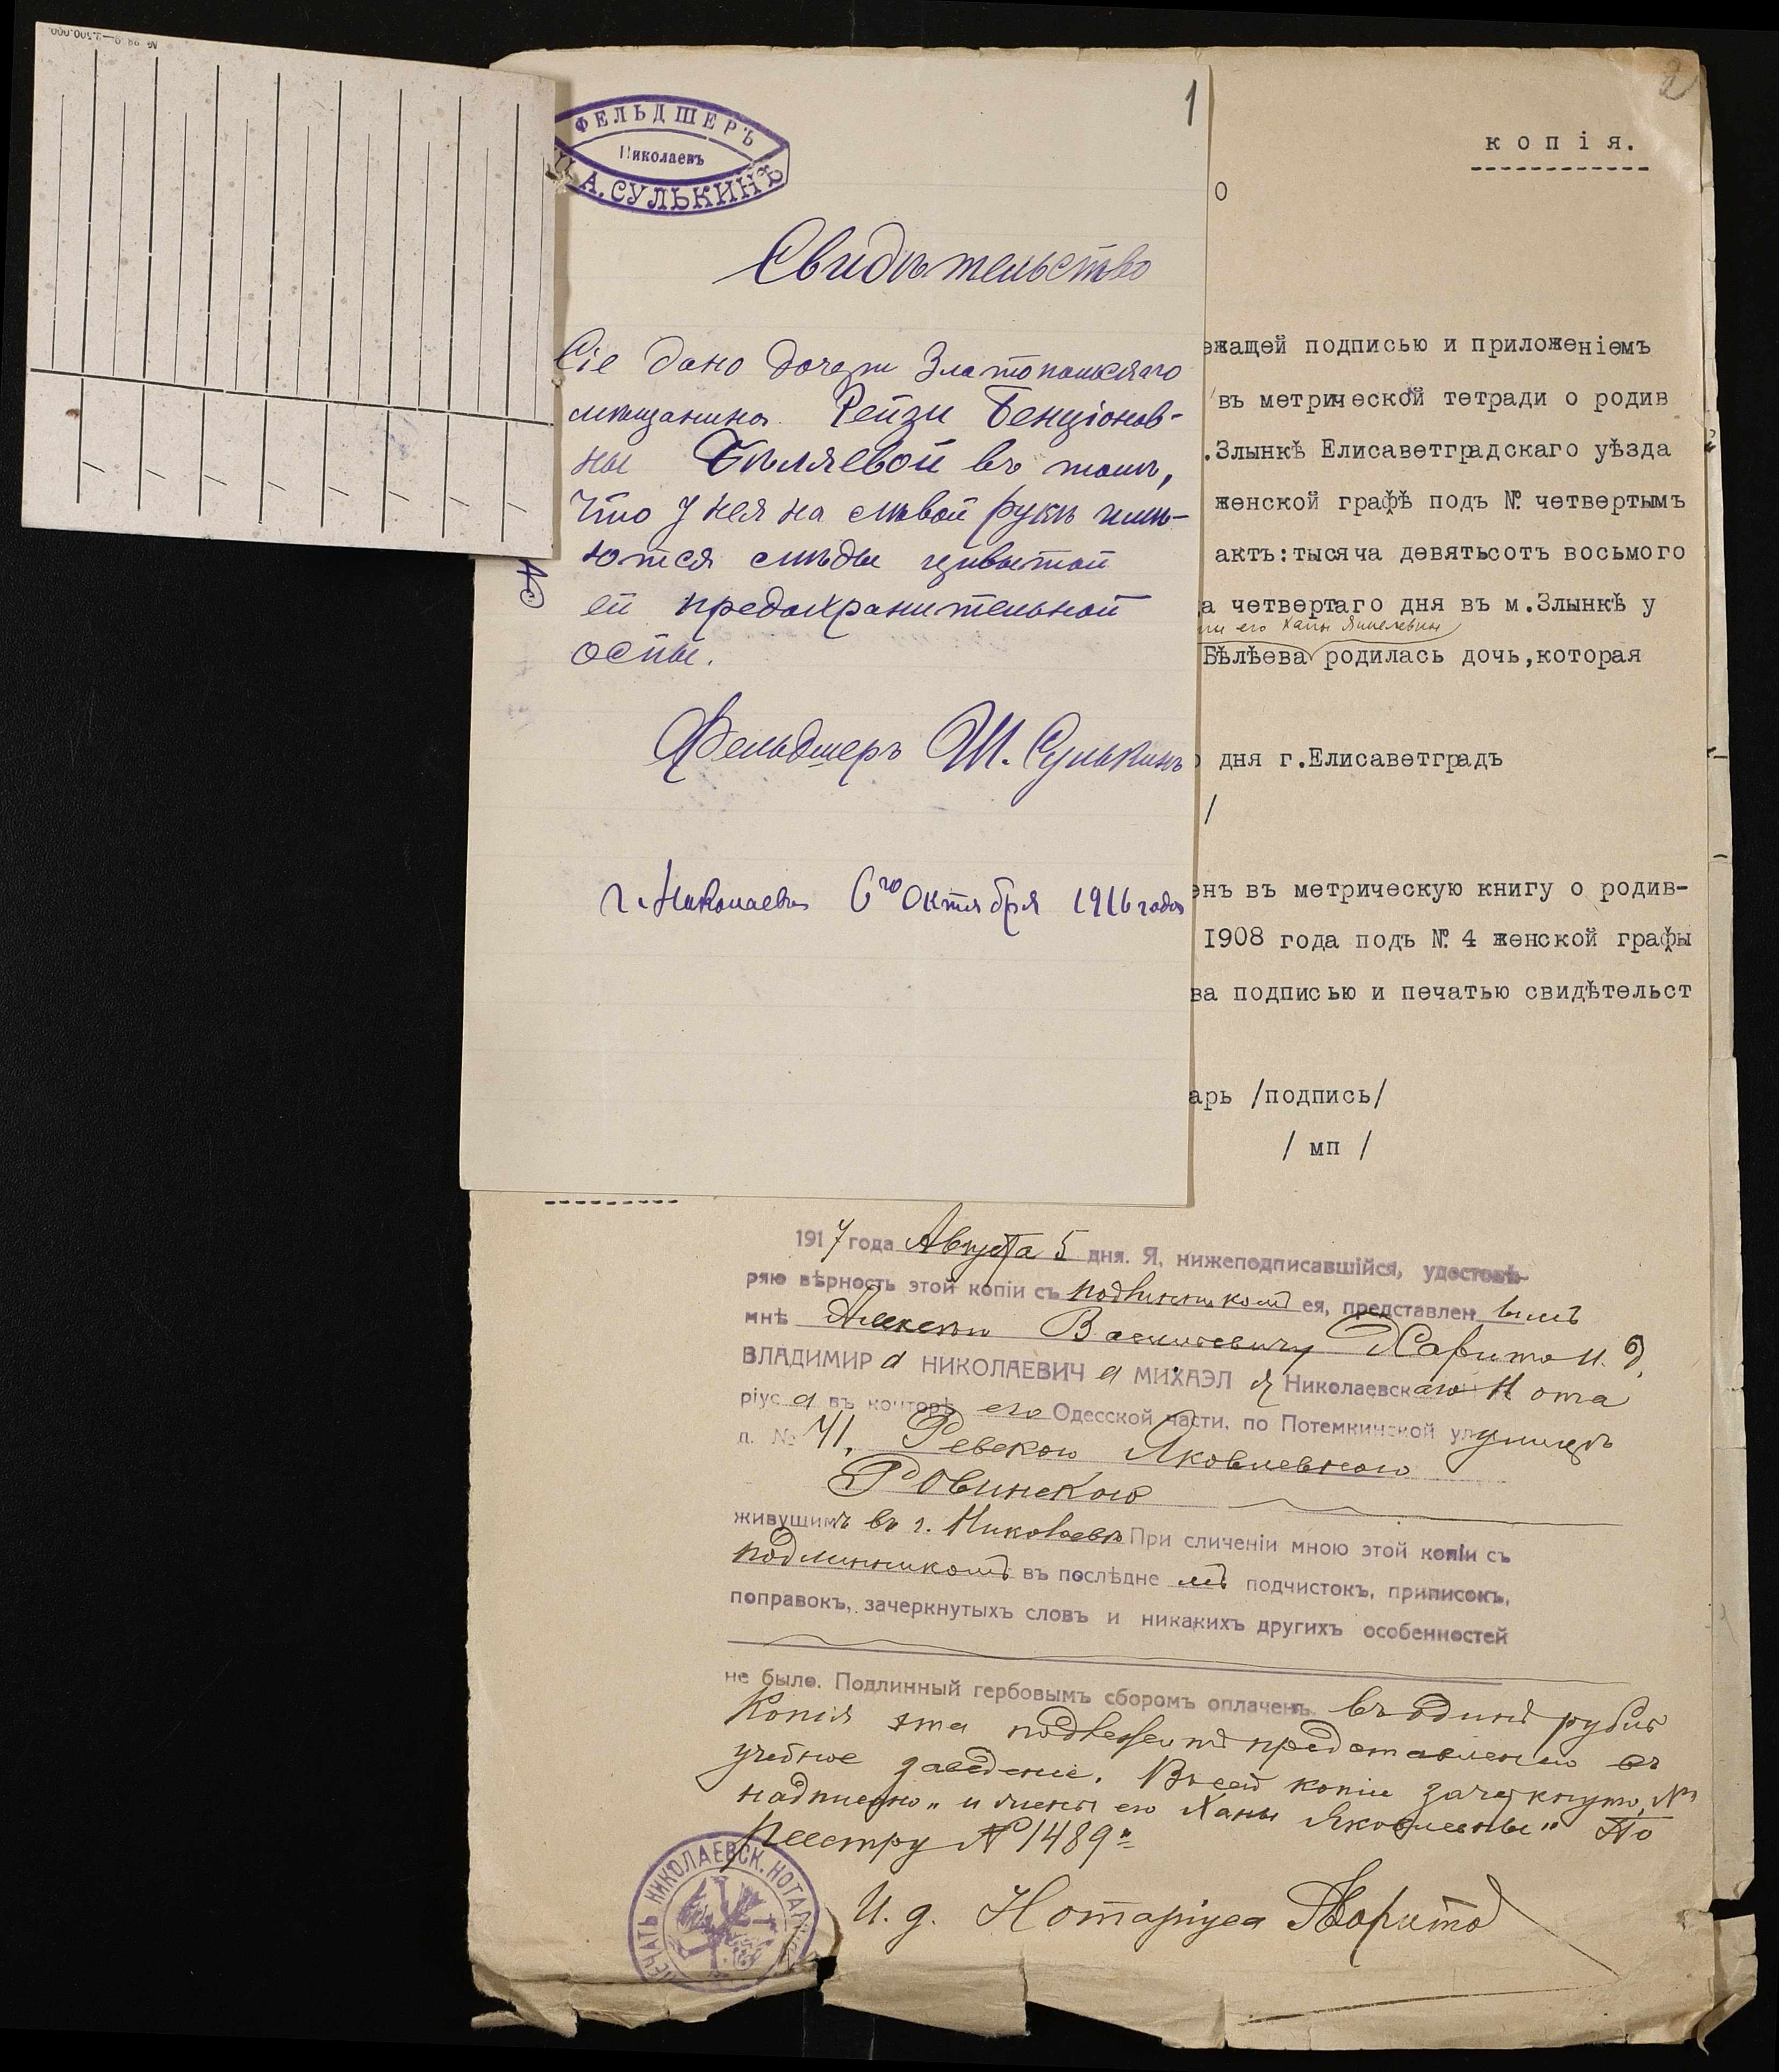 № 28 2—2.500.000
1
2
ФЕЛЬДШЕРЪ
Николаевъ
Ш А. СУЛЬКИНЪ
Свидѣтельство
Сіе дано дочери Златопольскаго
мѣщанина Рейзи Бенціонов-
ны Бѣляевой въ томъ,
что у нея на лѣвой рукѣ имѣ-
ются слѣды привитой
ей предохранительной
оспы.
Фельдшеръ Ш. Сулькинъ
г. Николаевъ 6го Октября 1916 года
копія.
о
ежащей подписью и приложеніемъ
въ метрической тетради о родив
.Злынкѣ Елисаветградскаго уѣзда
женской графѣ подъ №. четвертымъ
актъ: тысяча девятьсотъ восьмого
а четвертаго дня въ м.Злынкѣ у
его Ханы
Бѣлѣева родилась дочь, которая
дня г.Елисаветградъ
/
энъ въ метрическую книгу о родив-
1908 года подъ №. 4 женской графы
ва подписью и печатью свидѣтельст
арь /подпись/
/ мп /
1917 года Августа 5 дня. Я, нижеподписавшійся, удостовѣ-
ряю вѣрность этой копіи съ подлинникомъ ея, представленнымъ
мнѣ Алексѣю Васильевичу Харито и. д.
ВЛАДИМИРа НИКОЛАЕВИЧа МИХАЭЛя Николаевскаго Нота
ріуса въ конторѣ его Одесской части, по Потемкинской улицѣ
д. № 41, Ревекою Яковлевною
Ровинскою
живущимъ въ г. Николаевѣ При сличеніи мною этой копіи съ
подлинникомъ въ послѣднемъ подчистокъ, приписокъ,
поправокъ, зачеркнутыхъ словъ и никакихъ другихъ особенностей
не было. Подлинный гербовымъ сборомъ оплаченъ. въ одинъ рубль
Копія эта подлежитъ представленію въ
учебное заведеніе. Въ сей копіи зачеркнуто
надписано „и жены его Ханы Яковлевны" По
реестру № 1489.
И. д. Нотаріуса Харито
ПЕЧАТЬ НИКОЛАЕВСК. НОТАР